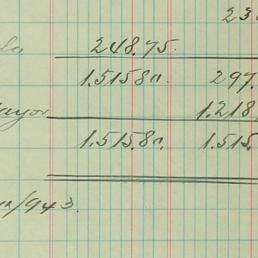 23
la 248.75.
1.515.80. 297.
ayor 1.218.
1.515.80. 1.515.
/943.